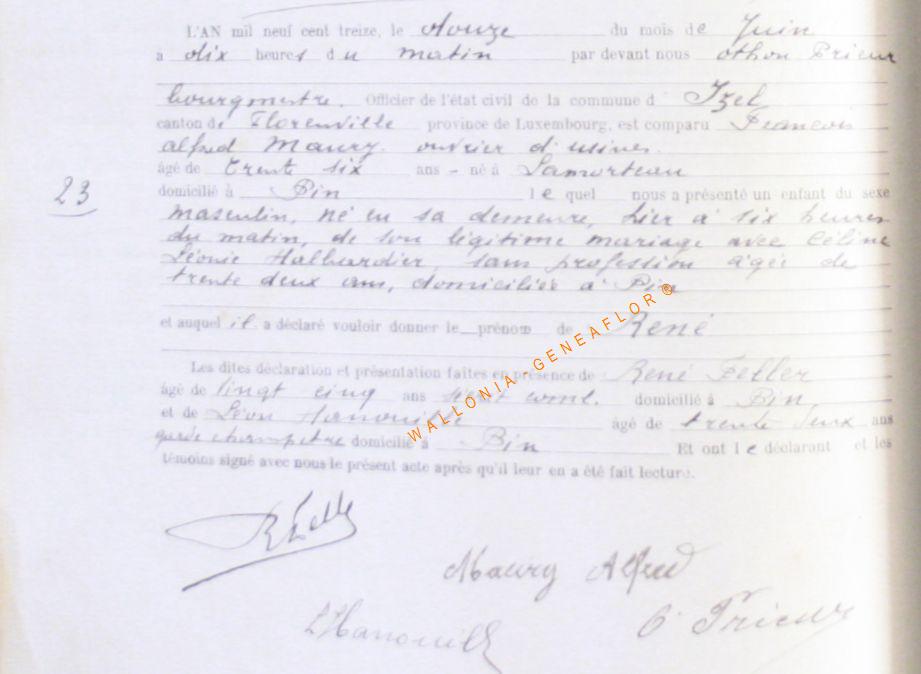 L'AN mil neuf cent treize, le douze du mois de Juin
a dix heures du matin par devant nous Othon Prieur
bourgmestre. Officier de l'état civil de la commune d' Izel
canton de Florenville province de Luxembourg, est comparu François
alfred Maury. ouvrier d'usines.
âgé de trente six ans - né à Lamorteau
domicilié à Pin le quel nous a présenté un enfant du sexe
23
masculin, né en sa demeure, hier à six heures
du matin, de son légitime mariage avec Céline
Léonie Halbardier, sans profession âgée de
trente deux ans, domiciliés à Pin
et auquel il a déclaré vouloir donner le prénom de René
Les dites déclaration et présentation faites en présence de René Feller
âgé de vingt cinq ans domicilié à Pin
et de Léon Hanouille âgé de trente deux ans
garde champetre domicilié à Pin Et ont le déclarant et les
témoins signé avec nous le présent acte après qu'il leur en a été fait lecture.
RFelle
Maury Alfred
LHanouille
O. Prieur
WALLONIA-GENEAFLOR®